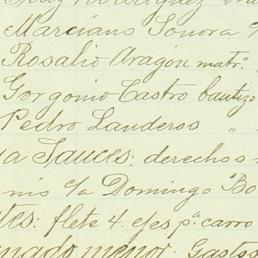 Rodriguez
Marciano Sonora
Rosalio Aragón matr.
Gorgonio Castro bautizo
Pedro Landeros "
Sauces: derechos
c/a Domingo Bo
tes: flete 4 ejes pª carro
nado menor. Gastos